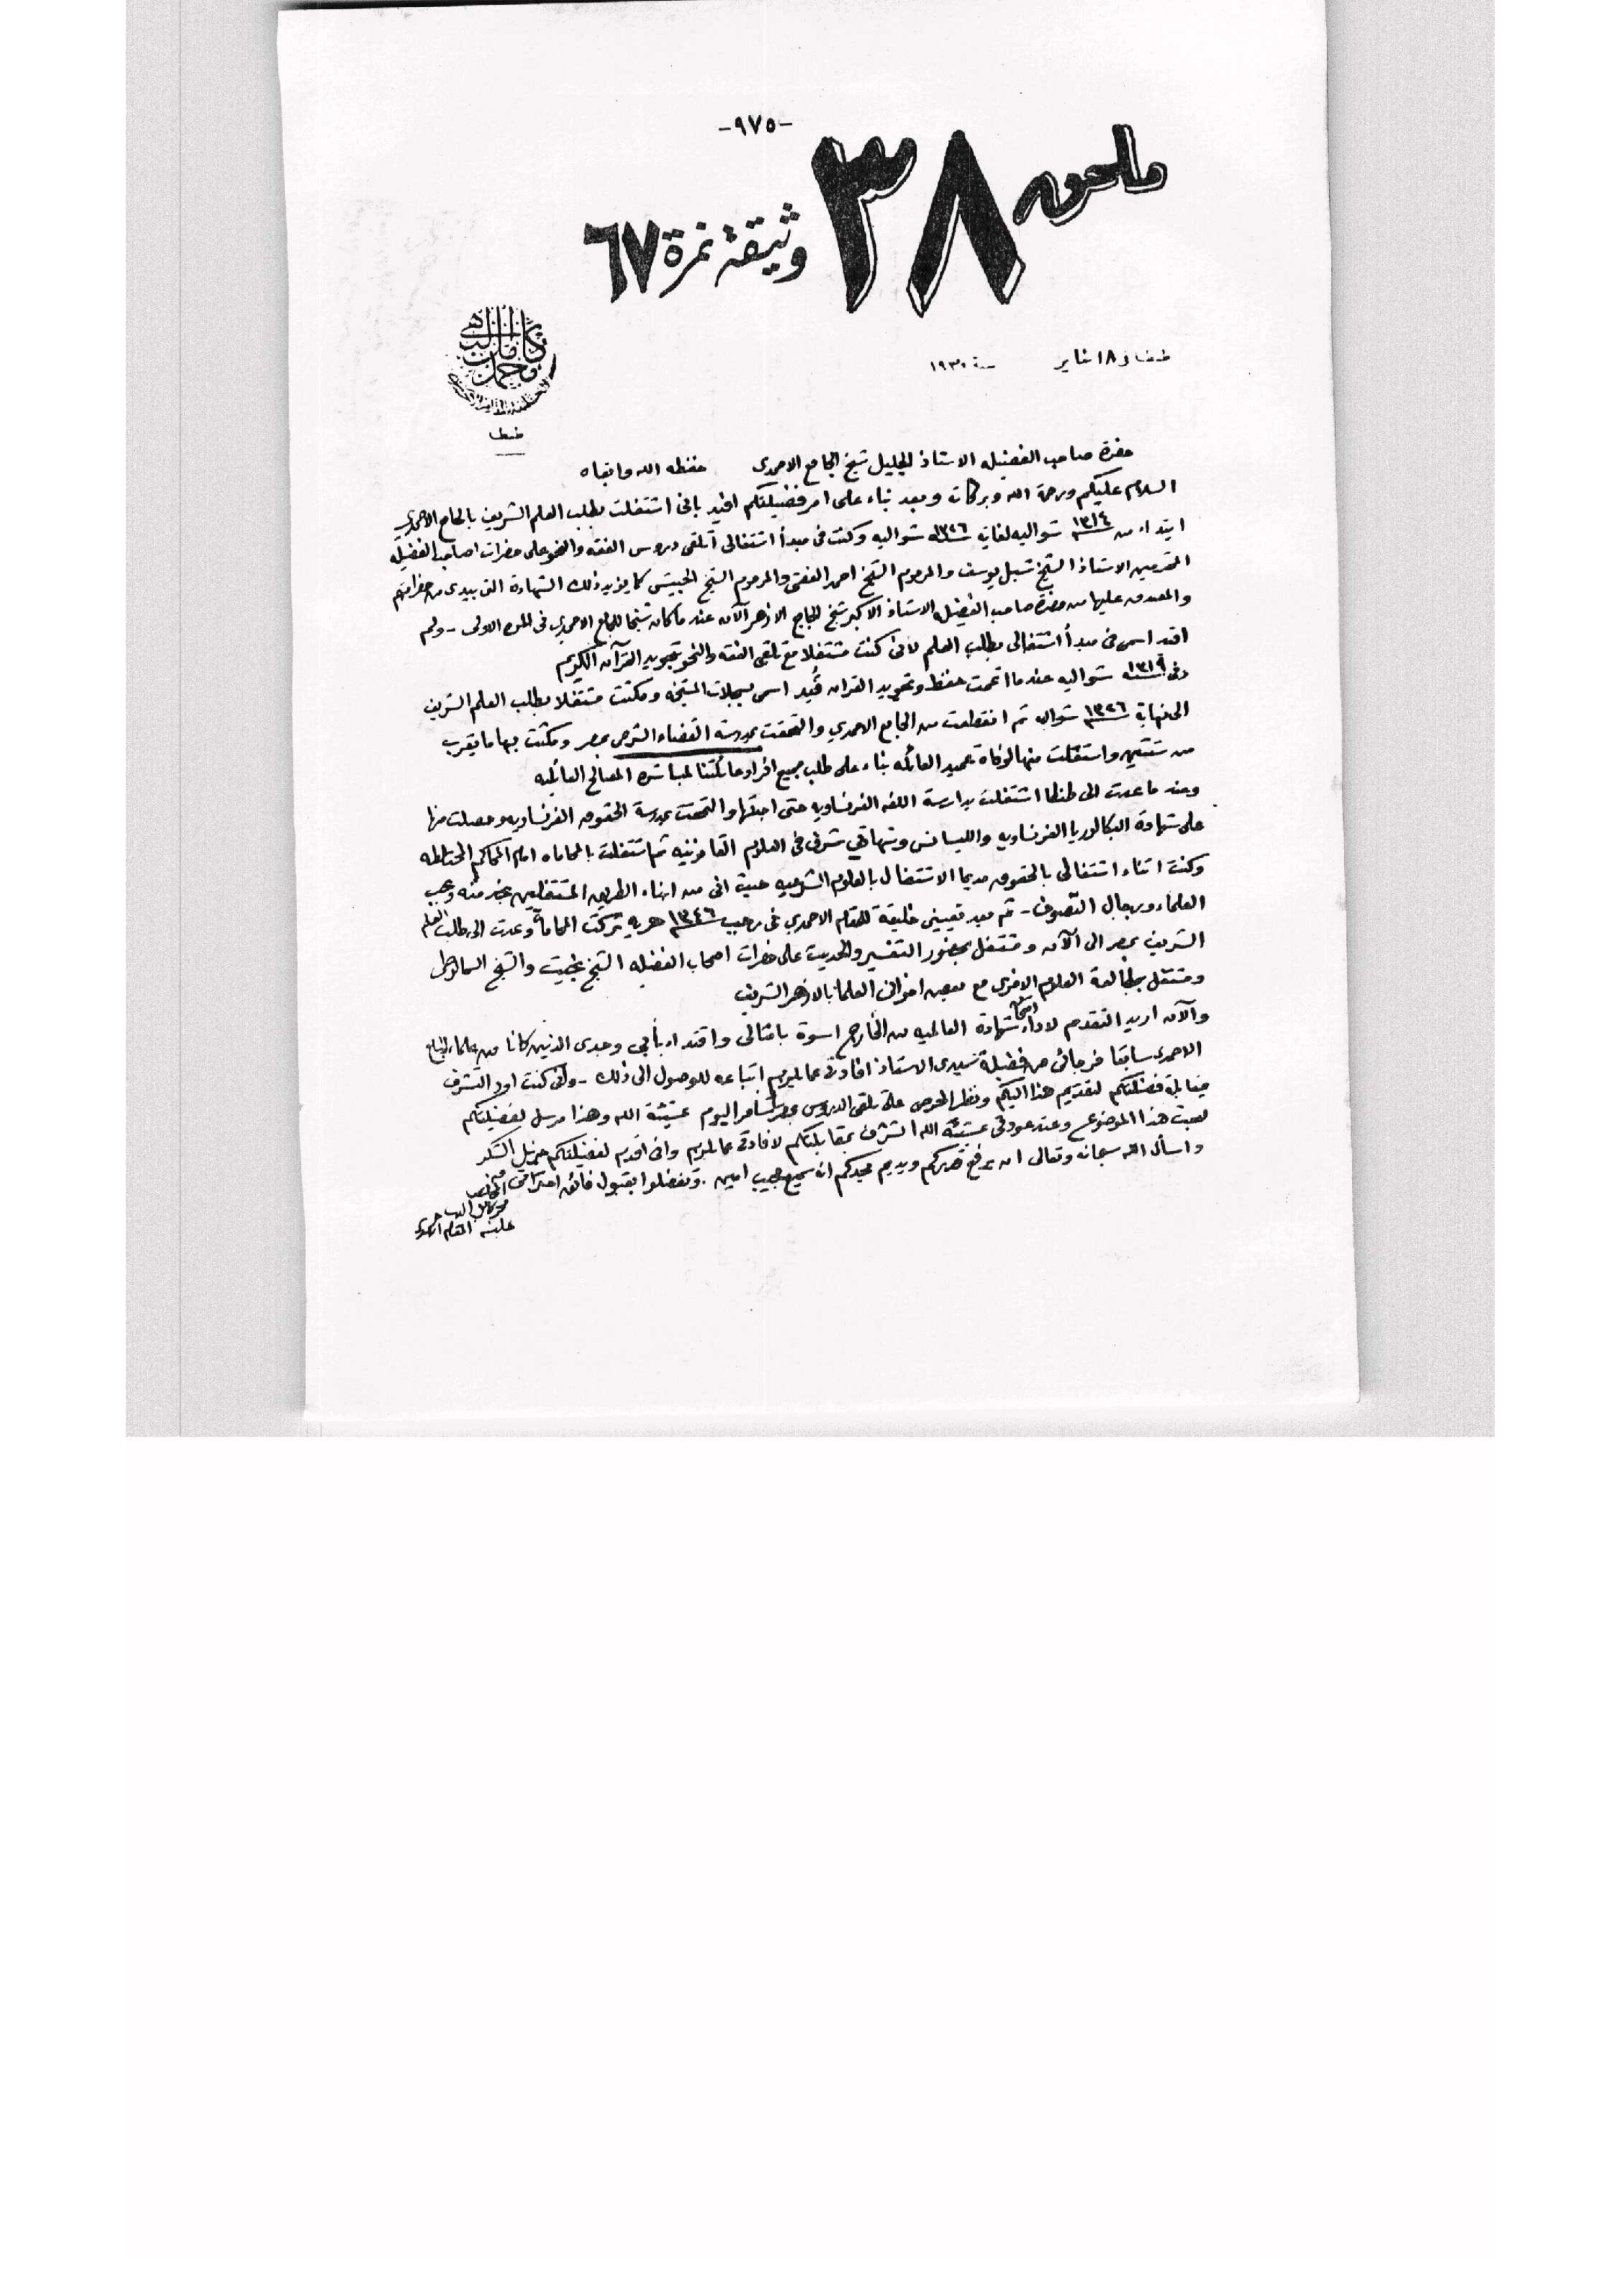 -٩٧٥-
ملحق ٣٨ وثيقة نمرة ٦٧
طنطا في ١٨ يناير سنة ١٩٣٠
محمد كامل
طنطا
حضرة صاحب الفضيله الاستاذ الجليل شيخ الجامع الاحمدى حفظه الله وابقاه
السلام عليكم ورحمة الله وبركاته وبعد بناء على امر فضيلتكم افيد بانى اشتغلت بطلب العلم الشريف بالجامع الاحمدي
ابتداء من ١٣١٤ شواليه لغاية ١٣٢٦ شواليه وكنت فى مبدأ اشتغالى أتلقى دروس الفقه والنحو على حضرات اصحاب الفضيلة
المحترمين الاستاذ الشيخ شبل يوسف والمرحوم الشيخ احمد الفقى والمرحوم الشيخ الحبيشى كما يؤيد ذلك الشهادة التى بيدى من حضراتهم
والمصدق عليها من حضرة صاحب الفضيله الاستاذ الاكبر شيخ الجامع الازهر الآن عندما كان شيخا للجامع الاحمدي فى المرة الاولى - ولم
اقيد اسمى فى مبدأ اشتغالى بطلب العلم لانى كنت مشتغلا مع تلقى الفقه والنحو بتجويد القرآن الكريم
وفى ١٣١٩ شواليه عندما اتممت حفظ وتجويد القران قُيد اسمى بسجلات المشيخه ومكثت مشتغلا بطلب العلم الشريف
الى نهاية ١٣٢٦ شواليه ثم انقطعت من الجامع الاحمدي والتحقت بمدرسة القضاء الشرعى بمصر ومكثت بها ما يقرب
من سنتين واستقلت منها لوفاة عميد العائله بناء على طلب جميع افراد عائلتنا لمباشرة المصالح العائليه
وعند ما عدت الى طنطا اشتغلت بدارسة اللغه الفرنساويه حتى اجدتها والتحقت بمدرسة الحقوق الفرنساويه وحصلت منها
على شهادة البكالوريا الفرنساويه والليسانس وشهادتي شرف فى العلوم القانونيه ثم اشتغلت بالمحاماه امام المحاكم المختلطه
وكنت اثناء اشتغالى بالحقوق مديما الاشتغال بالعلوم الشرعيه حيث انى من ابناء الطريق المشتغلين بخدمته وبحب
العلماء ورجال التصوف - ثم بعد تعيينى خليفة للمقام الاحمدي فى رجب ١٣٤٦ هجريه تركت المحاماة وعدت الى طلب العلم
الشريف بمصر الى الآن ومشتغل بحضور التفسير والحديث على حضرات اصحاب الفضيله الشيخ بخيت والشيخ السمالوطى
ومشتغل بمطالعة العلوم الاخرى مع بعض اخوانى العلما بالازهر الشريف
والآن اريد التقدم لاداء امتحان شهادة العالميه من الخارج اسوة بامثالى واقتداء بأبى وجدى الذين كانا من علماء الجامع
الاحمدى سابقا فرجائى من فضيلة سيدى الاستاذ افادتى عما يلزم اتباعه للوصول الى ذلك - وانى كنت اود التشرف
بمقابلة فضيلتكم لتقديم هذا اليكم ونظرا لحرصى على تلقى الدروس بمصر سأسافر اليوم بمشيئة الله وهذا مرسل لفضيلتكم
لبحث هذا الموضوع وعند عودتى بمشيئة الله اتشرف بمقابلتكم لافادتى عما يلزم وانى اقدم لفضيلتكم جزيل الشكر
واسأل الله سبحانه وتعالى ان يرفع قدركم ويديم مجدكم انه سميع مجيب امين . وتفضلوا بقبول فائق احترامى
المخلص
محمد كامل
خليفة المقام الاحمدي